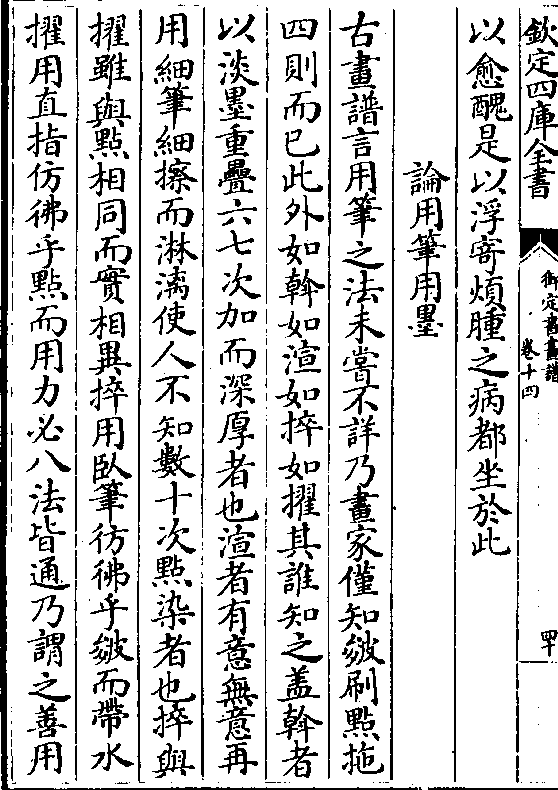 欽定四庫全書
御定書畫譜
卷十四
四十
以愈醜是以浮寄煩腫之病都坐於此
論用筆用墨
古畫譜言用筆之法未嘗不詳乃畫家僅知皴刷點拖
四則而已此外如斡如渲如捽如擢其誰知之蓋斡者
以淡墨重疊六七次加而深厚者也渲者有意無意再
用細筆細擦而淋漓使人不知數十次點染者也捽與
擢雖與點相同而實相異捽用臥筆彷彿乎皴而帶水
擢用直指仿彿乎點而用力必八法皆通乃謂之善用